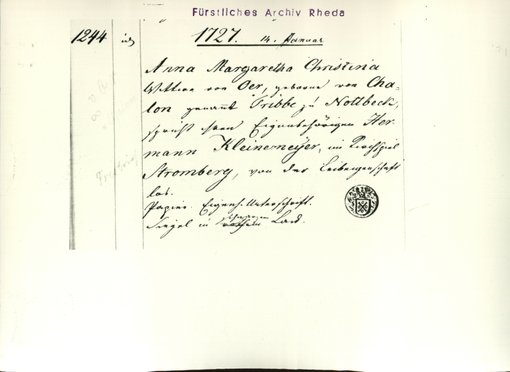 Fürstliches Archiv Rheda
1244
1727. 14. Januar
Anna Margaretha Christina
Wittwe von Oer, geborne von Cha-
lon genannt Gribbe zu Nottbeck,
spricht ihren Eigenbehörigen Her-
mann Kleinemeyer, im Kirchspiel
Stromberg, von der Leibeigenschaft
los.
Papier. Eigenh. Unterschrift.
Siegel in schwarzem Lack.